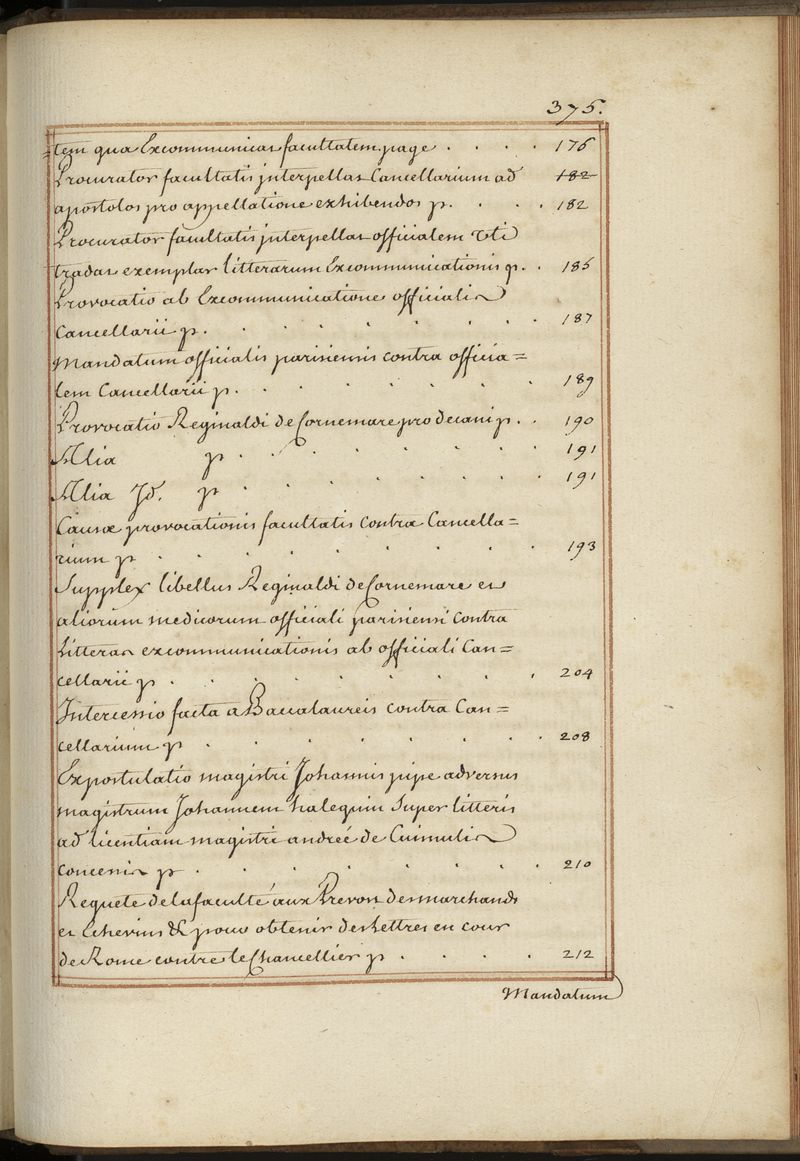 375.
tem qua Excommunicat facultatem. page . . . . 176
Procurator facultatis jnterpellat Cancellarium ad 182
apostolos pro appellatione exhibendos p. . . . 182
Procurator facultatis jnterpellat officialem uti
tradat exemplar litterarum Excommunicationis p. . 185
Provocatio ab Excommunicatione officialis
Cancellarii p. . . . . . . . 187
Mandatum officialis parisiensis contra officia=
lem Cancellarii p. . . . . . . 189
Provocatio Reginaldi de Cornemare pro decani p. . 190
Alia p . . . . . . . 191
Alia Jd. p . . . . . . . 191
Causæ provocationis facultatis Contra Cancella=
rium p . . . . . . . 193
Supplex libellus Reginaldi de Cornemare et
aliorum medicorum officiali parisiensi Contra
Litteras excommunicationis ab officiali Can=
cellarii p . . . . . . . 204
Intercessio facta a Baccalaureis contra Can=
cellarium p . . . . . . . 208
Expostulatio magistri Johannis pipe adversus
magistrum Johannem halequin Super litteris
ad licentiam magistri andreé de Cuimulis
Concenis p . . . . . . . 210
Requete de la faculté aux Prevon des marchands
et Echevins & pour obtenir des Lettres en cour
de Rome contre le Chancellier p . . . . 212
Mandatum